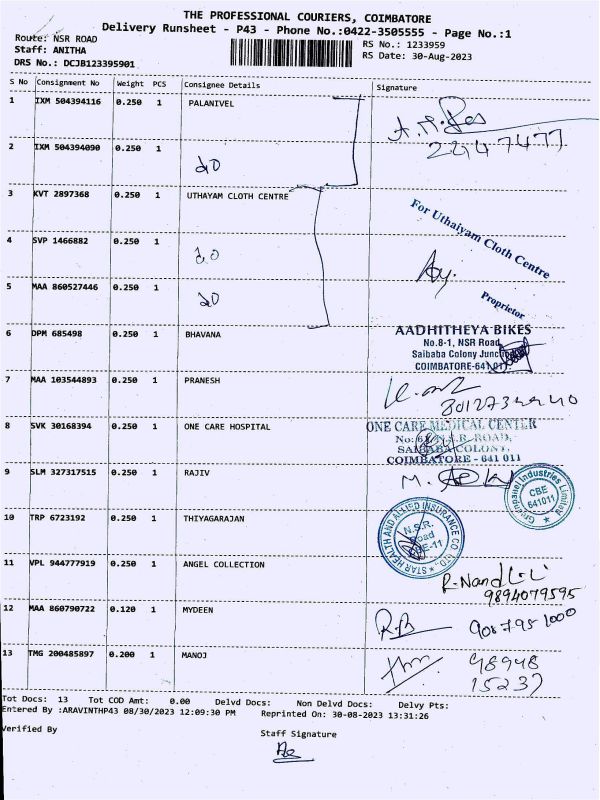 THE PROFESSIONAL COURIERS, COIMBATORE
Delivery Runsheet - P43 - Phone No.:0422-3505555 - Page No.:1
Route: NSR ROAD
RS No.: 1233959
Staff: ANITHA
RS Date: 30-Aug-2023
DRS No.: DCJB123395901
S No Consignment No Weight PCS Consignee Details Signature
1 IXM 504394116 0.250 1 PALANIVEL
2247477
2 IXM 504394090 0.250 1
do
3 KVT 2897368 0.250 1 UTHAYAM CLOTH CENTRE
For Uthaiyam Cloth Centre
4 SVP 1466882 0.250 1
do
5 MAA 860527446 0.250 1
do
Proprietor
6 DPM 685498 0.250 1 BHAVANA
AADHITHEYA BIKES
No.8-1, NSR Road,
Saibaba Colony Junction
COIMBATORE-641 011.
7 MAA 103544893 0.250 1 PRANESH
8 SVK 30168394 0.250 1 ONE CARE HOSPITAL
ONE CARE MEDICAL CENTER
N.S.R. ROAD,
SAIBABA COLONY,
COIMBATORE - 641 011
9 SLM 327317515 0.250 1 RAJIV
Greenpanel Industries Limited
CBE
641011
10 TRP 6723192 0.250 1 THIYAGARAJAN
STAR HEALTH AND ALLIED INSURANCE CO LTD
N.S.R.
Road
CBE-11
11 VPL 944777919 0.250 1 ANGEL COLLECTION
9894079595
12 MAA 860790722 0.120 1 MYDEEN
9087951000
13 TMG 200485897 0.200 1 MANOJ
98948
15237
Tot Docs: 13 Tot COD Amt: 0.00 Delvd Docs: Non Delvd Docs: Delvy Pts:
Entered By :ARAVINTHP43 08/30/2023 12:09:30 PM Reprinted On: 30-08-2023 13:31:26
Verified By
Staff Signature